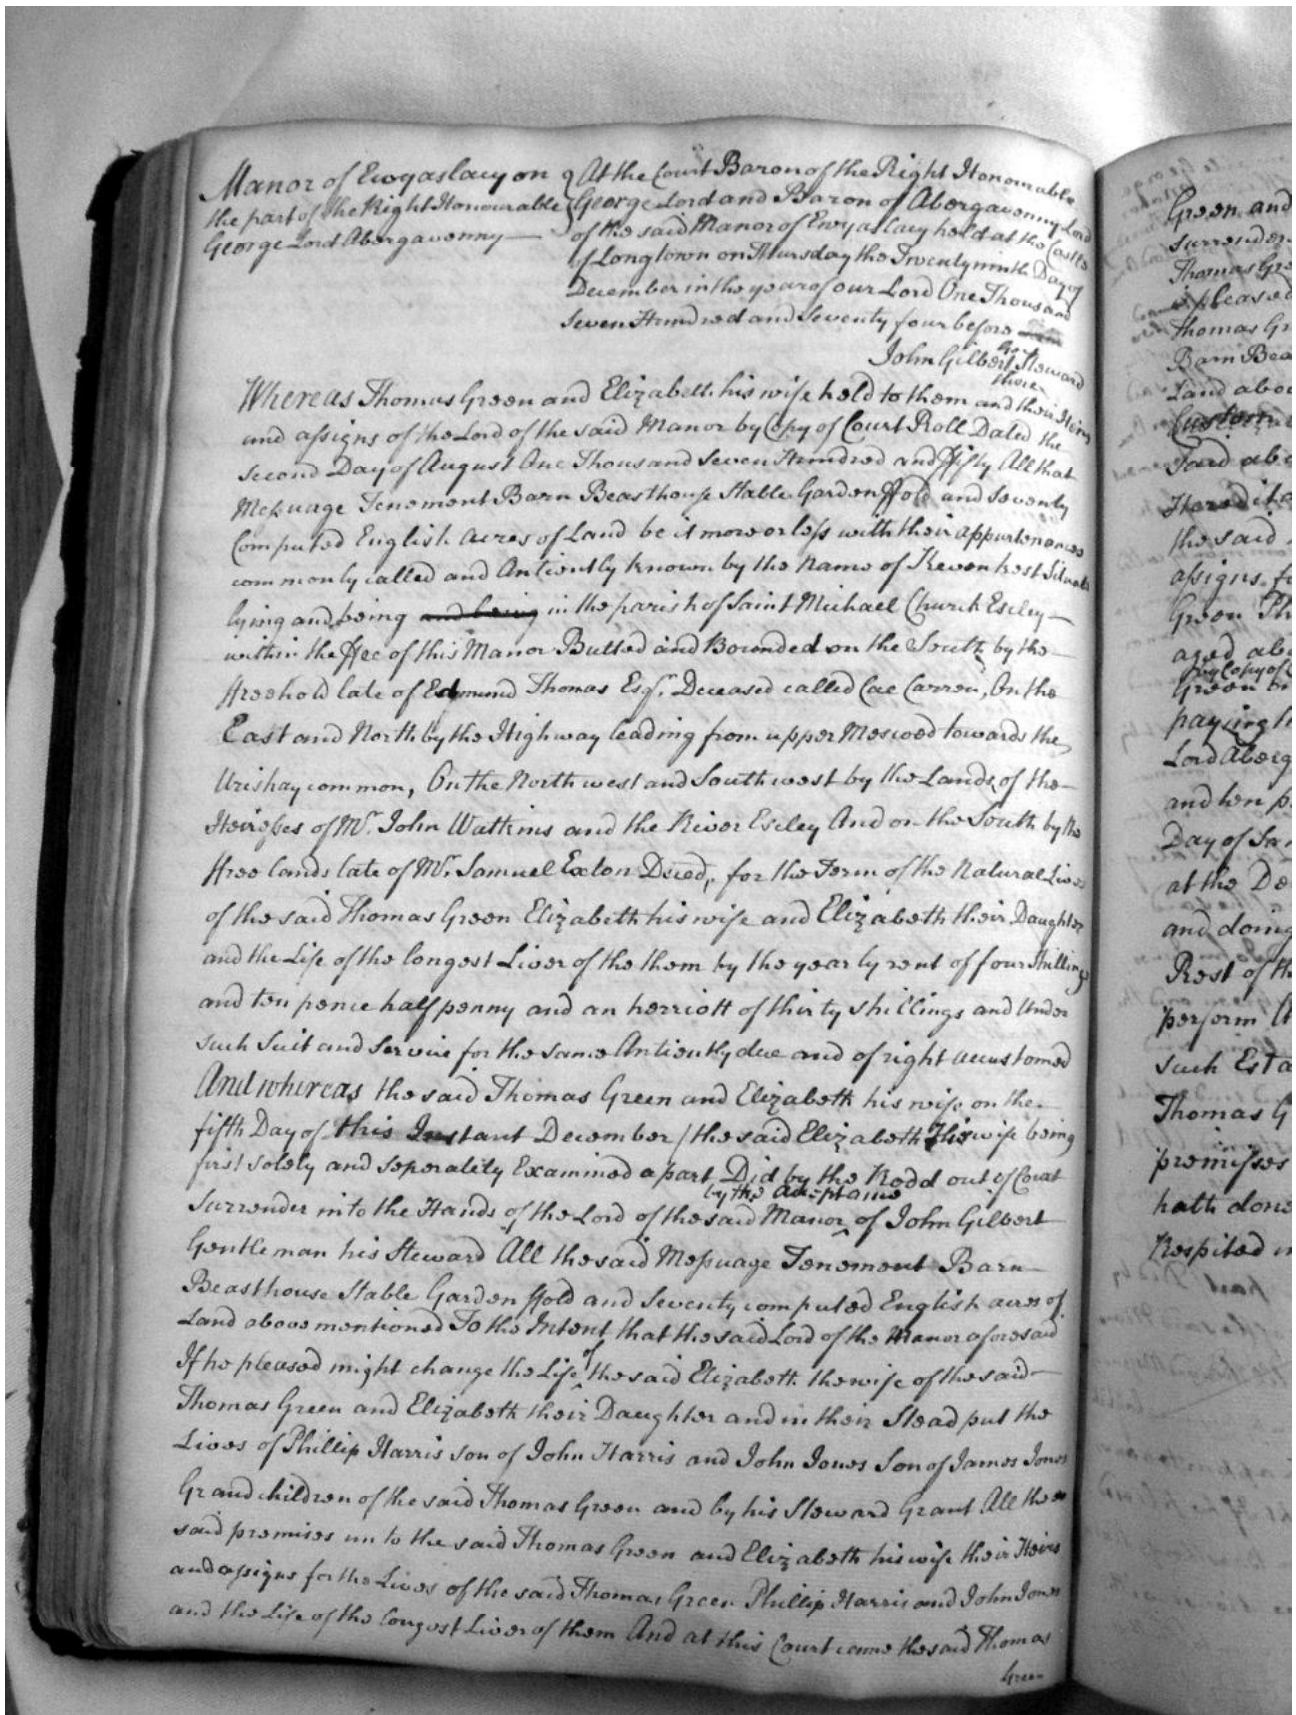 Manor of Ewyaslacy on
the part of the Right Honourable
George Lord Abergavenny
At the Court Baron of the Right Honourable
George Lord and Baron of Abergavenny Lord
of the said Manor of Ewyaslacy held at the Castle
of Longtown on Thursday the Twenty ninth Day of
December in the year of our Lord One Thousand
Seven Hundred and Seventy four before
John Gilbert Gent Steward
there
Whereas Thomas Green and Elizabeth his wife held to them and their Heirs
and assigns of the Lord of the said Manor by Copy of Court Roll Dated the
second Day of August One Thousand Seven Hundred and ffifty All that
Messuage Tenement Barn Beasthouse Stable Garden ffold and Seventy
Computed English acres of Land be it more or less with their appurtenances
commonly called and Antiently known by the name of Kevenhest Situate
lying and being and being in the parish of Saint Michael Church Escley
within the ffee of this Manor Butted and Bounded on the South by the
ffreehold late of Edmund Thomas Esqr. Deceased called Cae Carrou, On the
East and North by the Highway leading from upper Mescoed towards the
Urishay common, On the North west and South west by the Lands of the
Heiresses of Mr. John Watkins and the River Escley And on the South by the
ffree lands late of Mr. Samuel Exton Deced, for the Term of the Natural Lives
of the said Thomas Green Elizabeth his wife and Elizabeth their Daughter
and the Life of the longest Liver of the them by the yearly rent of four Shillings
and ten pence half penny and an herriott of thirty shillings and Under
such Suit and Service for the same Antiently due and of right accustomed
And whereas the said Thomas Green and Elizabeth his wife on the
fifth Day of this Instant December (the said Elizabeth his wife being
first solely and seperately Examined apart Did by the Rodd out of Court
by the acceptance
Surrender into the Hands of the Lord of the said Manor ^ of John Gilbert
Gentleman his Steward All the said Messuage Tenement Barn
Beasthouse Stable Garden ffold and Seventy computed English acres of
Land above mentioned To the Intent that the said Lord of the Manor aforesaid
If he pleased might change the Life ^of the said Elizabeth the wife of the said
Thomas Green and Elizabeth their Daughter and in their Stead put the
Lives of Phillip Harris son of John Harris and John Jones Son of James Jones
Grandchildren of the said Thomas Green and by his Steward Grant All the
said premises unto the said Thomas Green and Elizabeth his wife their Heirs
and assigns for the Lives of the said Thomas Green Phillip Harris and John Jones
and the Life of the Longest Liver of them And at this Court came the said Thomas
Green
Green and
surrender
Thomas Gre
pleased
Thomas Gr
Barn Bea
Land abo
Custom
Said abo
Heredita
the said
assigns fo
Green Ph
aged abo
by Copy of C
Green
paying
Lord Aberg
and ten p
Day of
at the De
and doing
Rest of th
perform
such Esta
Thomas G
premisses
hath done
Respited